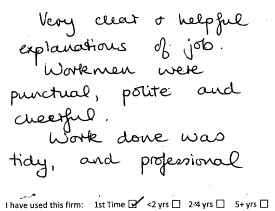 Very clear & helpful
explanations of job.
Workmen were
punctual, polite and
cheerful.
Work done was
tidy, and professional
I have used this firm: 1st Time ☑ <2 yrs ☐ 2/4 yrs ☐ 5+ yrs ☐